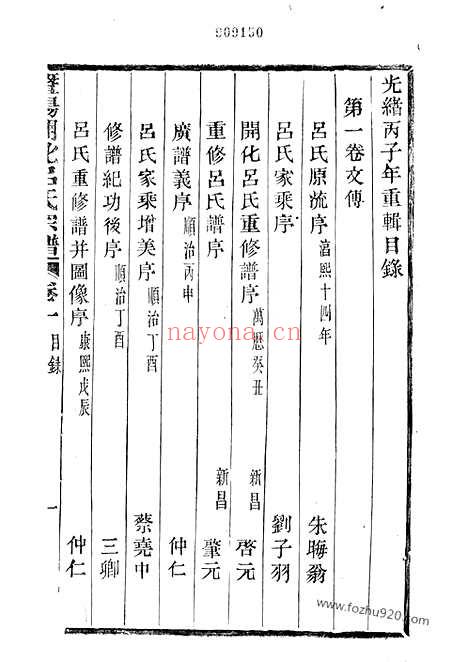 909150
光緒丙子年重輯目錄
第一卷文傳
呂氏原流序 淳熙十四年 朱晦翁
呂氏家乘序 劉子羽
開化呂氏重修譜序 萬曆癸丑 新昌 啓元
重修呂氏譜序 新昌 肇元
廣譜義序 順治丙申 仲仁
呂氏家乘增美序 順治丁酉 蔡堯中
修譜紀功後序 順治丁酉 三卿
呂氏重修譜并圖像序 康熙戊辰 仲仁
暨陽開化呂氏宗譜 卷一 目錄 一
nayona.cn
www.fozhu920.com